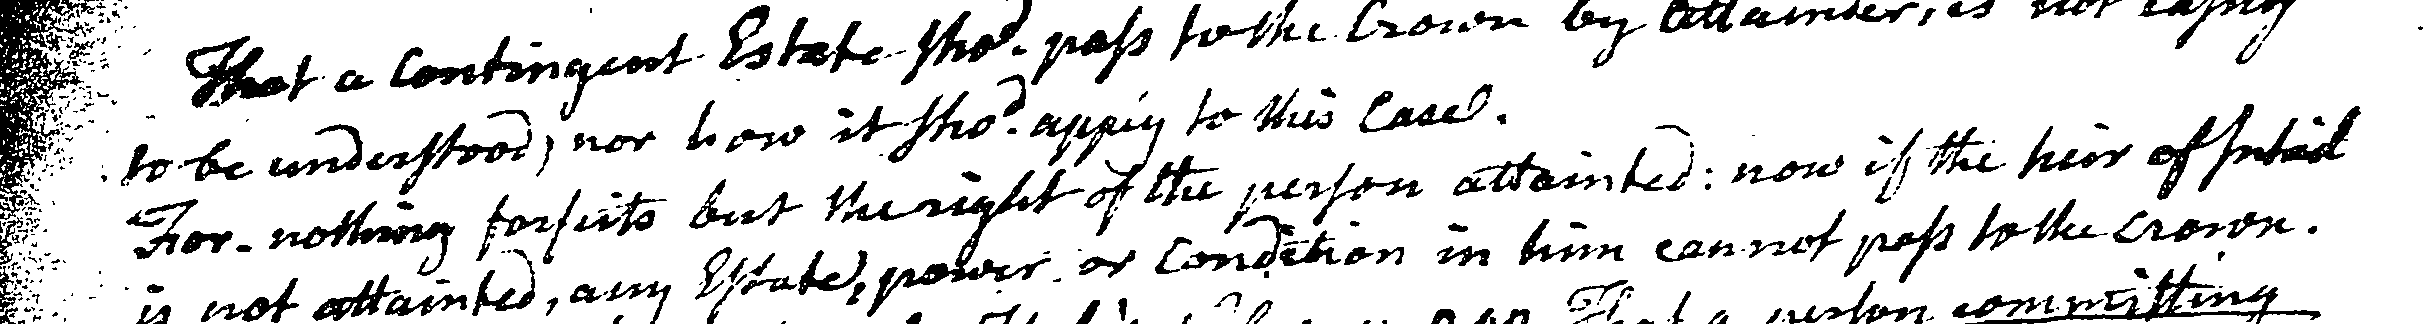 That a Contingent Estate shod. pass to the Crown by Attainder, is not easily
to be understood, nor how it shod. apply to this Case.
For nothing forfeits but the right of the person attainted: now if the heir of Intail
is not attainted, any Estate, power or Condition in him cannot pass to the Crown.
That a person committing